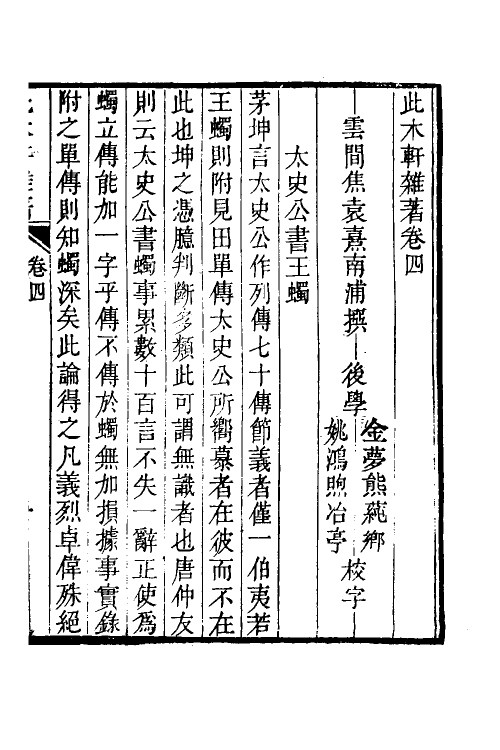 此木軒雜著卷四
雲間焦袁熹南浦撰 後學
金夢熊蓴鄉
姚鴻煦冶亭
校字
太史公書王蠋
茅坤言太史公作列傳七十傳節義者僅一伯夷若
王蠋則附見田單傳太史公所嚮慕者在彼而不在
此也坤之憑臆判斷多類此可謂無識者也唐仲友
則云太史公書蠋事累數十百言不失一辭正使爲
蠋立傳能加一字乎傳不傳於蠋無加損據事實錄
附之單傳則知蠋深矣此論得之凡義烈卓偉殊絕
卷四